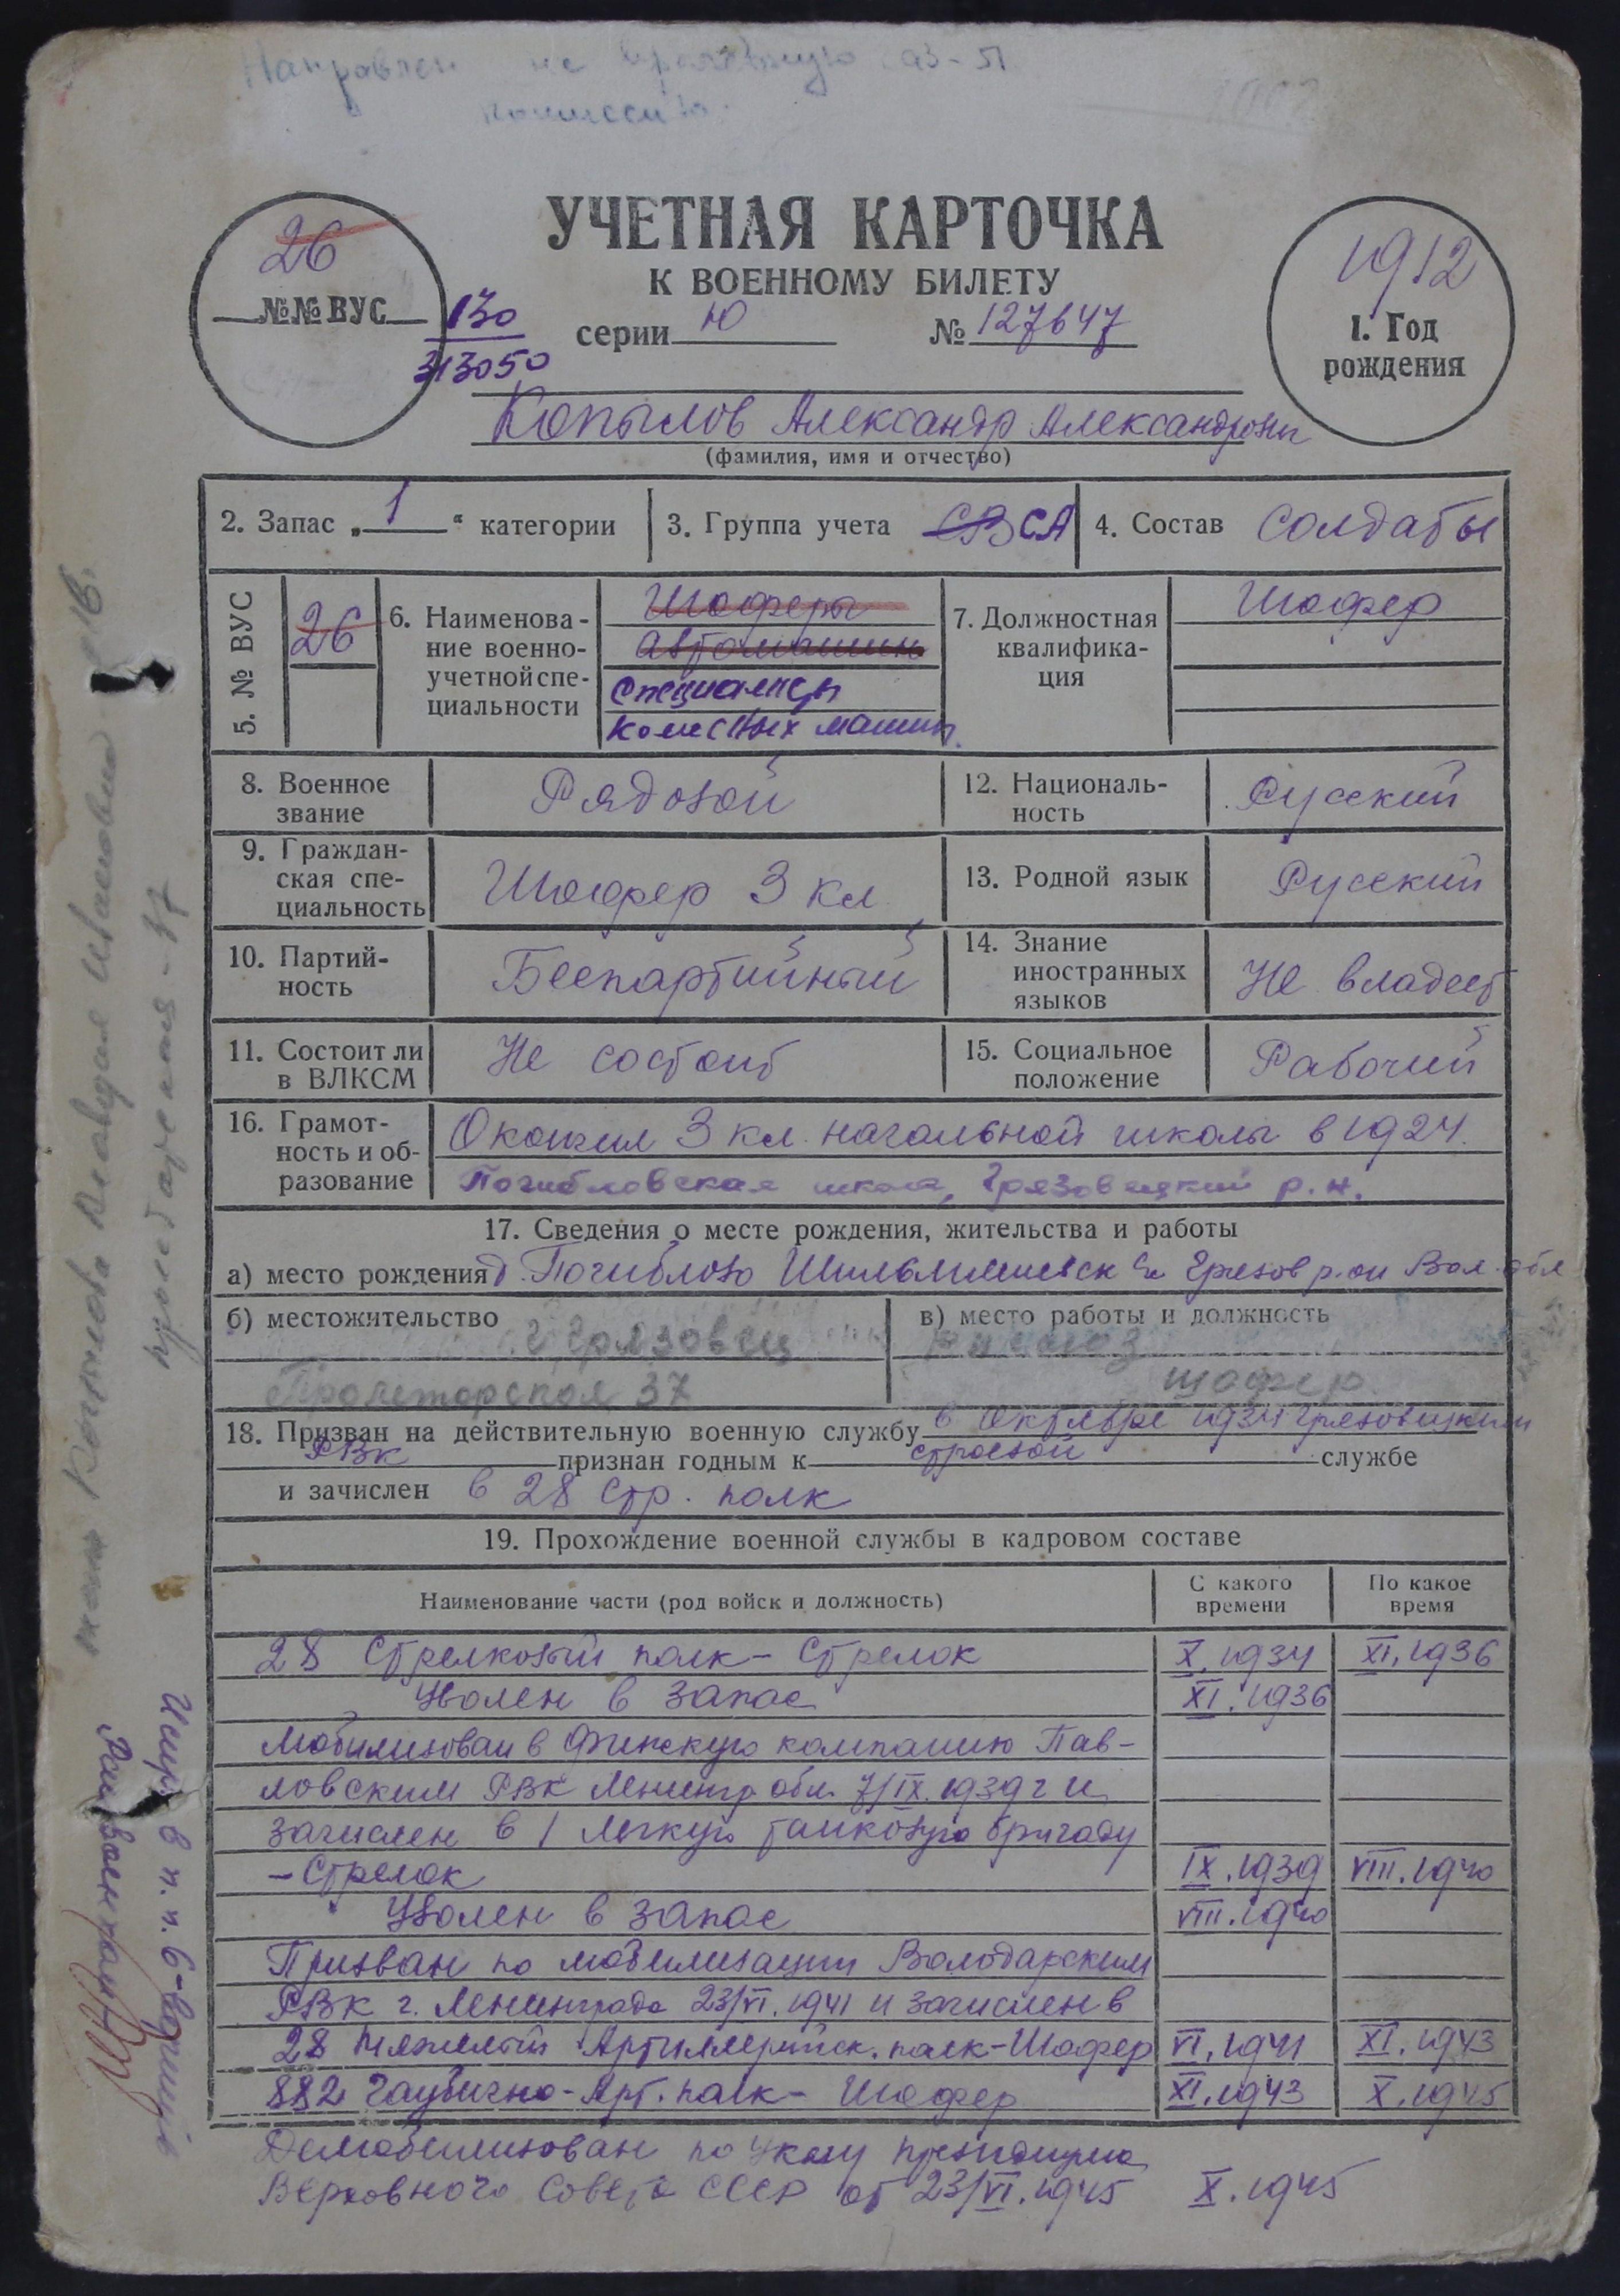 Направлен на
комиссию
26
№№ ВУС
130
313050
УЧЕТНАЯ КАРТОЧКА
К ВОЕННОМУ БИЛЕТУ
серии Ю № 127647
1912
1. Год
рождения
Копылов Александр Александрович
(фамилия, имя и отчество)
2. Запас „ 1 “ категории
3. Группа учета СВ СА
4. Состав Солдаты
5. № ВУС
26
6. Наименова-
ние военно-
учетной спе-
циальности
Шоферы
автомашин
специалисты
колесных машин.
7. Должностная
квалифика-
ция
Шофер
8. Военное
звание
Рядовой
12. Националь-
ность
Русский
9. Граждан-
ская спе-
циальность
Шофер 3 кл
13. Родной язык
Русский
10. Партий-
ность
Беспартийный
14. Знание
иностранных
языков
Не владеет
11. Состоит ли
в ВЛКСМ
Не состоит
15. Социальное
положение
Рабочий
16. Грамот-
ность и об-
разование
Окончил 3 кл. начальной школы в 1924.
Погибловская школа, Грязовецкий р.н.
17. Сведения о месте рождения, жительства и работы
а) место рождения д. Погиблово Грязов р-он Вол. обл
б) местожительство
г Грязовец
Пролетарская 37
в) место работы и должность
шофер
18. Призван на действительную военную службу в Октябре 1934 Грязовецким
РВК признан годным к строевой службе
и зачислен в 28 Стр. полк
19. Прохождение военной службы в кадровом составе
Наименование части (род войск и должность)
С какого
времени
По какое
время
28 Стрелковый полк - Стрелок X. 1934 XI. 1936
Уволен в запас XI. 1936
Мобилизован в Финскую компанию Пав-
ловским РВК Ленингр обл. 7/IX. 1939 г и
зачислен в 1 легкую танковую бригаду
- Стрелок IX. 1939 VIII. 1940
Уволен в запас VIII. 1940
Призван по мобилизации Володарским
РВК г. Ленинграда 23/VI. 1941 и зачислен в
28 Тяжелый Артиллерийск. полк - Шофер VI. 1941 XI. 1943
882 Гаубично-Арт. полк - Шофер XI. 1943 X. 1945
Демобилизован по Указу Президиума
Верховного Совета СССР от 23/VI. 1945 X. 1945
жена Копылова Клавдия Ивановна
пролетарская - 37
Испр. в п. п. 6